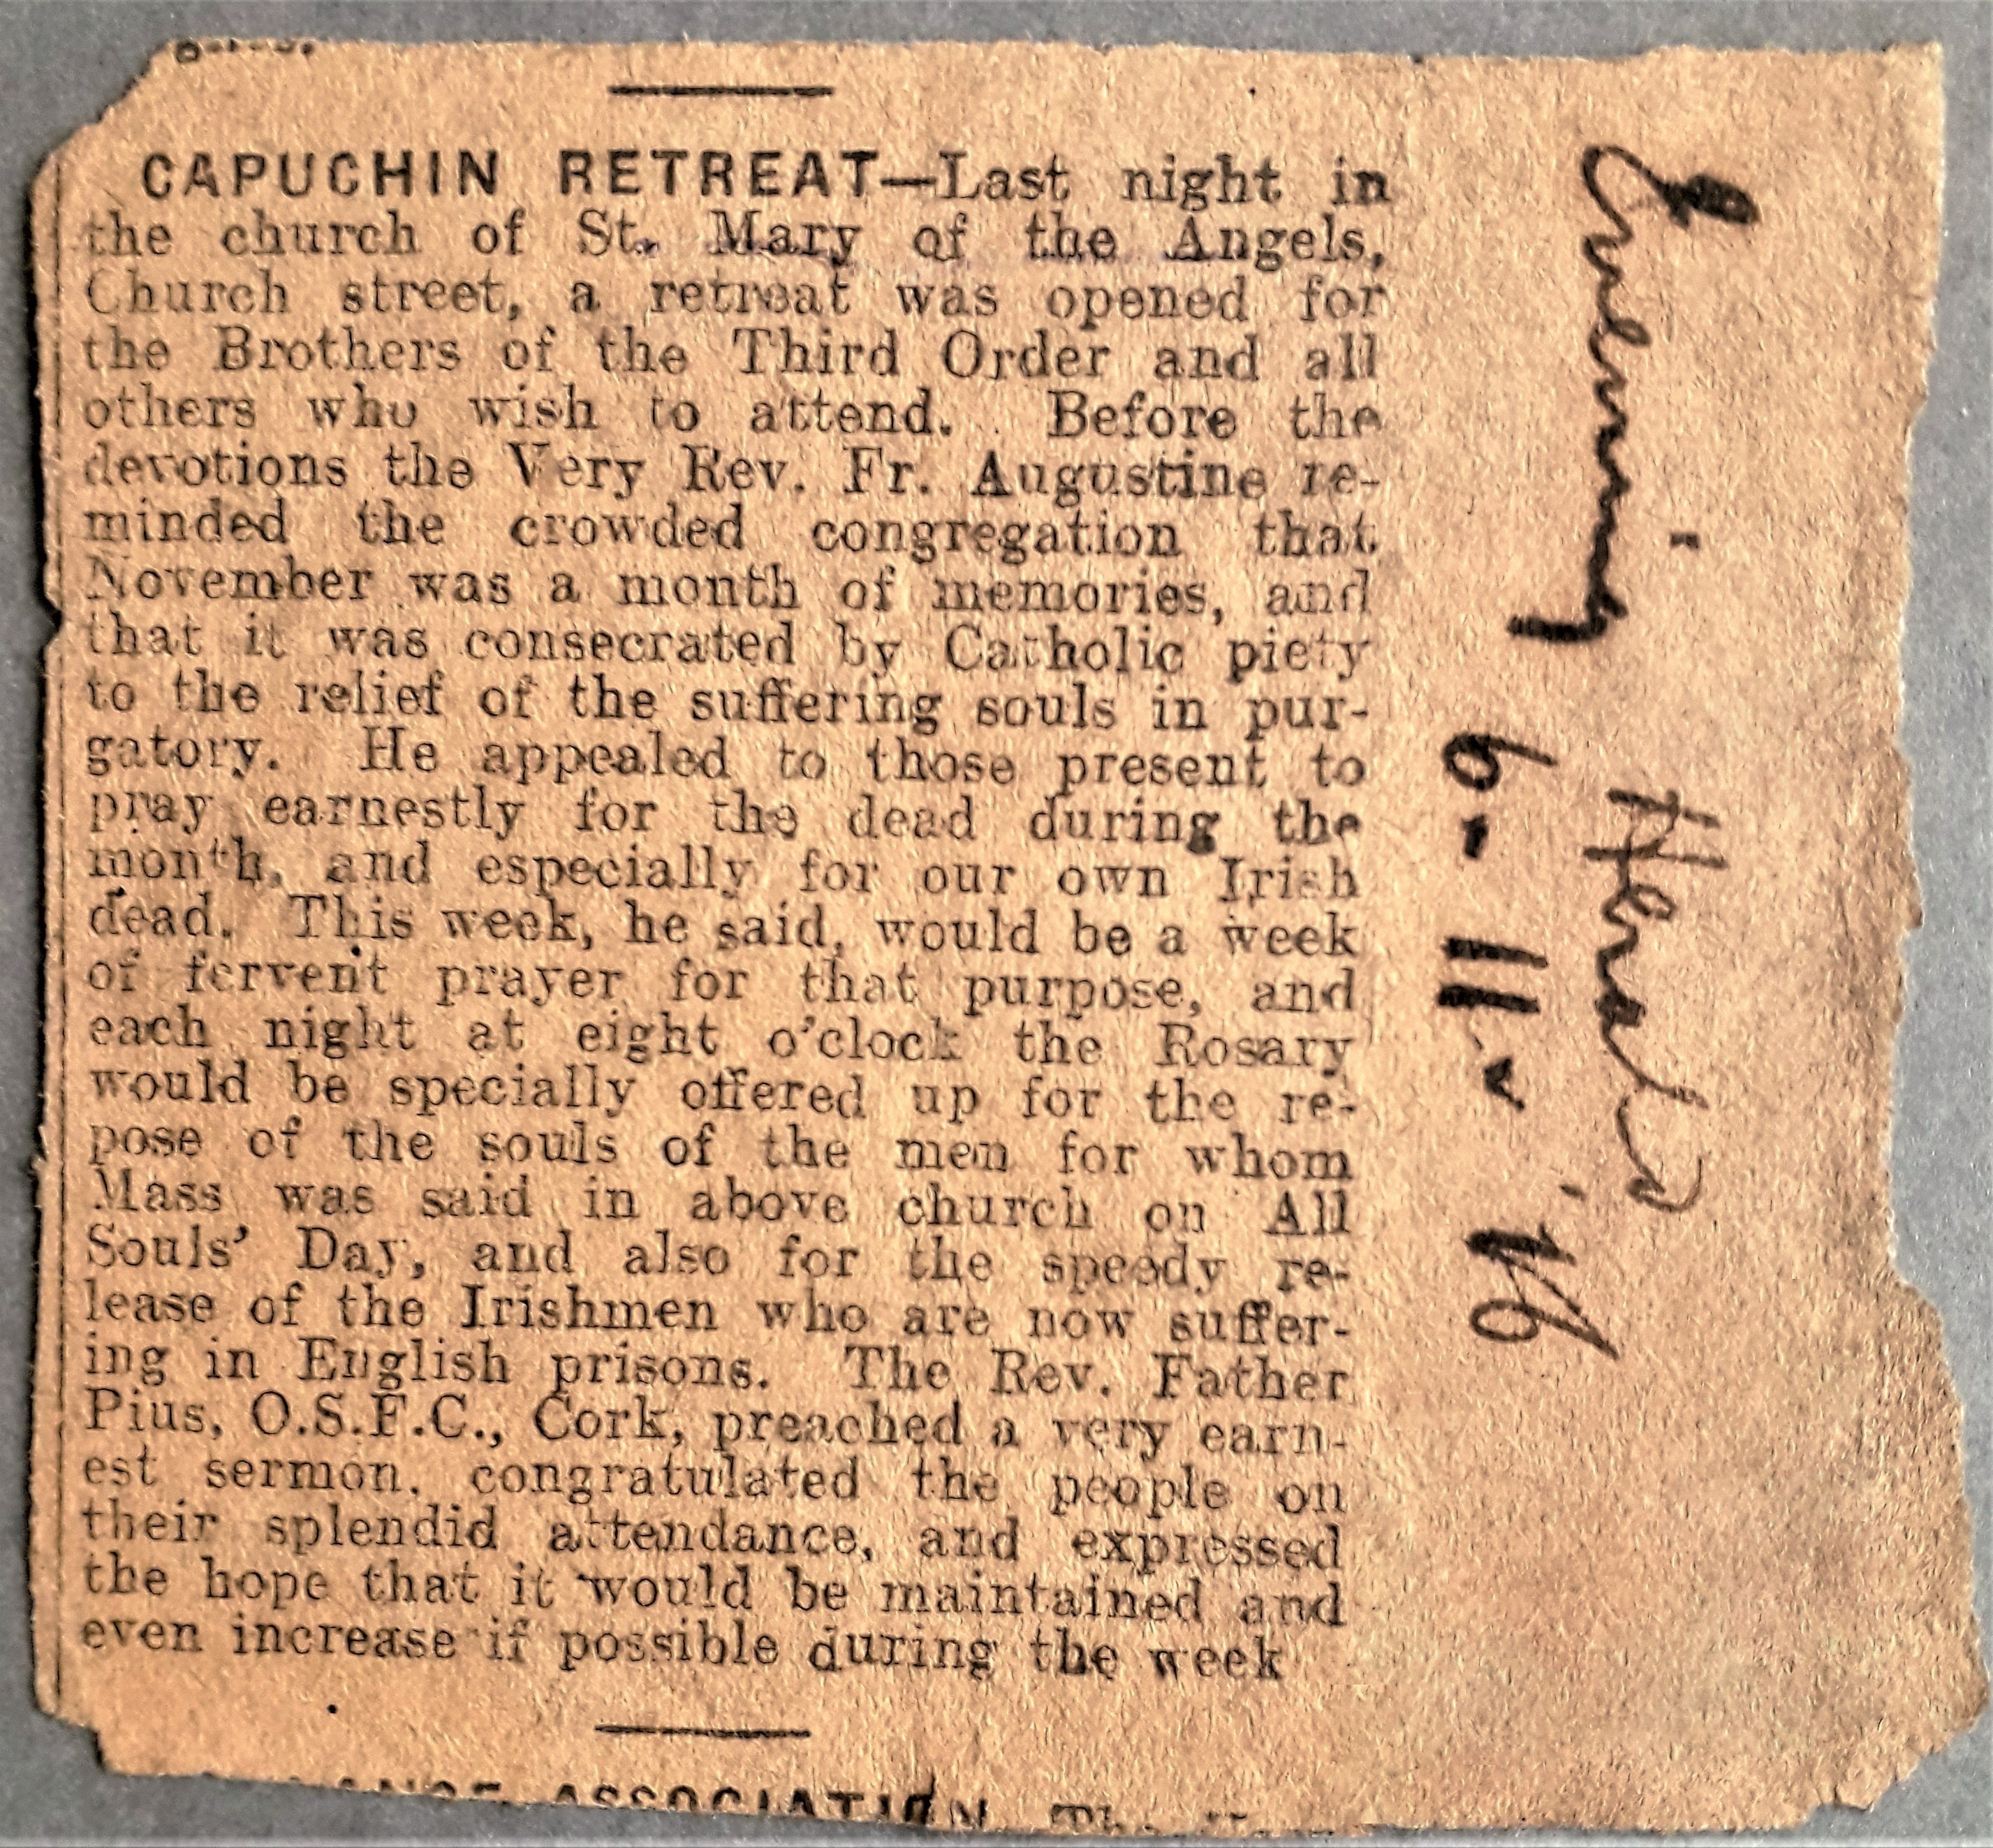 CAPUCHIN RETREAT—Last night in
the church of St. Mary of the Angels,
Church street, a retreat was opened for
the Brothers of the Third Order and all
others who wish to attend. Before the
devotions the Very Rev. Fr. Augustine re-
minded the crowded congregation that
November was a month of memories, and
that it was consecrated by Catholic piety
to the relief of the suffering souls in pur-
gatory. He appealed to those present to
pray earnestly for the dead during the
month, and especially for our own Irish
dead. This week, he said, would be a week
of fervent prayer for that purpose, and
each night at eight o'clock the Rosary
would be specially offered up for the re-
pose of the souls of the men for whom
Mass was said in above church on All
Souls' Day, and also for the speedy re-
lease of the Irishmen who are now suffer-
ing in English prisons. The Rev. Father
Pius, O.S.F.C., Cork, preached a very earn-
est sermon, congratulated the people on
their splendid attendance, and expressed
the hope that it would be maintained and
even increase if possible during the week
ASSOCIATION
Evening Herald
6-11-'16